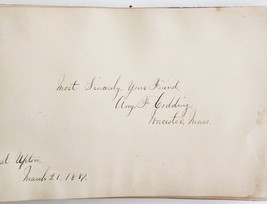 Most Sincerely Your Friend
Aug. F. Codding,
Worcester, Mass.
st Upton
March 21, 1881.